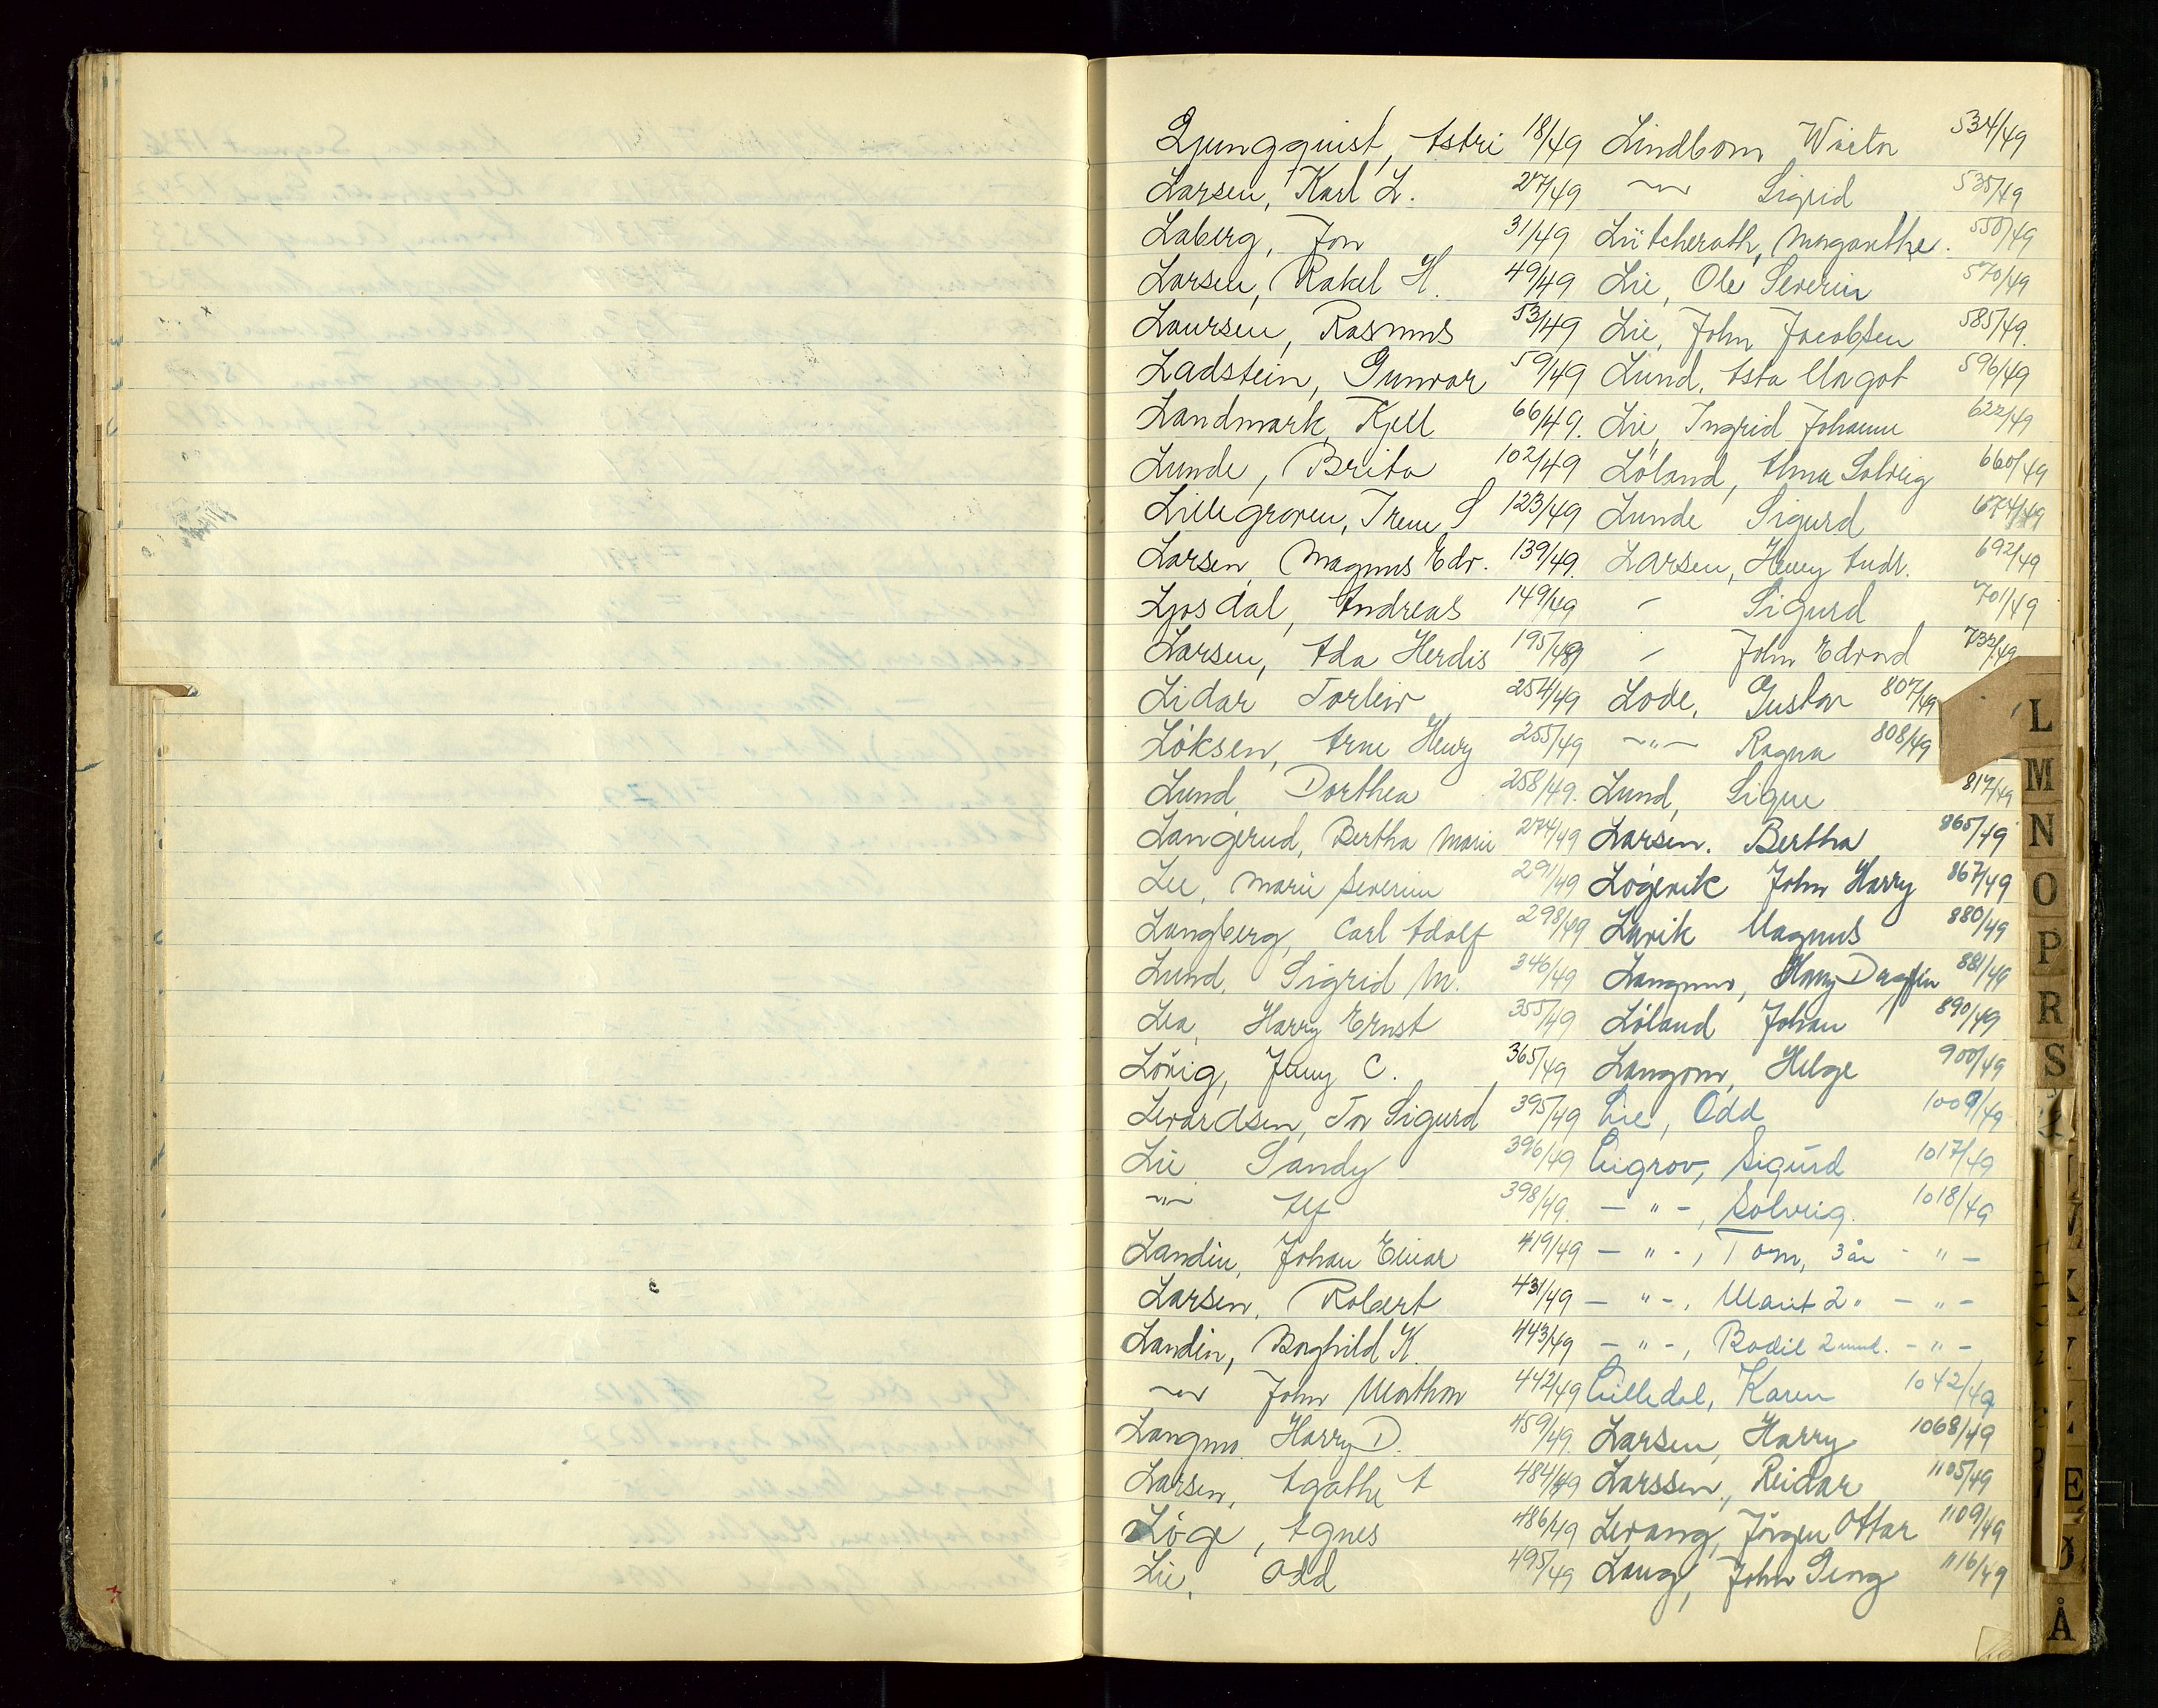 Ljungquist, Astri 18/49
Larsen, Karl L. 27/49
Laberg, Jon 31/49
Larsen, Rakel H. 49/49
Laursen, Rasmus 53/49
Ladstein, Gunvar 59/49
Landmark, Kjell 66/49.
Lunde, Brita 102/49
Lillegraven, Irene S 123/49
Larsen, Magnus Edv. 139/49.
Ljosdal, Andreas 149/49
Larsen, Ada Herdis 195/49
Lidar Torleiv 254/49
Löksen, Arne Henry 255/49
Lund, Dorthea 258/49.
Langerud, Bertha Marie 274/49
Lie, Marie Severine 291/49
Langberg, Carl Adolf 298/49
Lund, Sigrid M. 346/49
Lea, Harry Ernst 355/49
Lövig, Jenny C. 365/49
Levardsen, Tor Sigurd 395/49
Lie Sandy 396/49
-"- Alf 398/49.
Landin, Johan Einar 419/49
Larsen, Robert 431/49
Landin, Borghild K. 443/49
-"- John Marthon 442/49
Langmo Harry D. 459/49.
Larsen, Agathe A 484/49
Löge, Agnes 486/49
Lie, Odd 495/49
Lindbom Victor 534/49
-"- Sigrid 535/49
Lütcherath, Margarethe. 550/49
Lie, Ole Severin 570/49
Lie, John Jacobsen 585/49.
Lund, Asta Margot 596/49
Lie, Ingrid Johanne 622/49
Löland, Alma Solveig 660/49
Lunde Sigurd 674/49
Larsen, Henry Andr. 692/49
- Sigurd 701/49
- John Edvard 732/49
Lode, Gustav 807/49
-"- Ragna 808/49
Lund, Signe 817/49
Larsen. Bertha 865/49
Lögevik John Harry 867/49
Larik Magnus 880/49
Langmo, Harry Dagfin 881/49
Löland Johan 890/49
Langom, Helge 900/49
Lie, Odd 1009/49
Liegrov, Sigurd 1017/49
- " -, Solveig. 1018/49
- " -, Tom, 3 år - " -
- " -, Marit 2 " - " -
- " -, Bodil 2 mnd. - " -
Lilledal, Karen 1042/49
Larsen, Harry 1068/49
Larssen, Reidar 1105/49
Levang, Jörgen Ottar 1109/49
Laug, John Georg 1116/49
L
M
N
O
P
R
S
E
Ø
Å